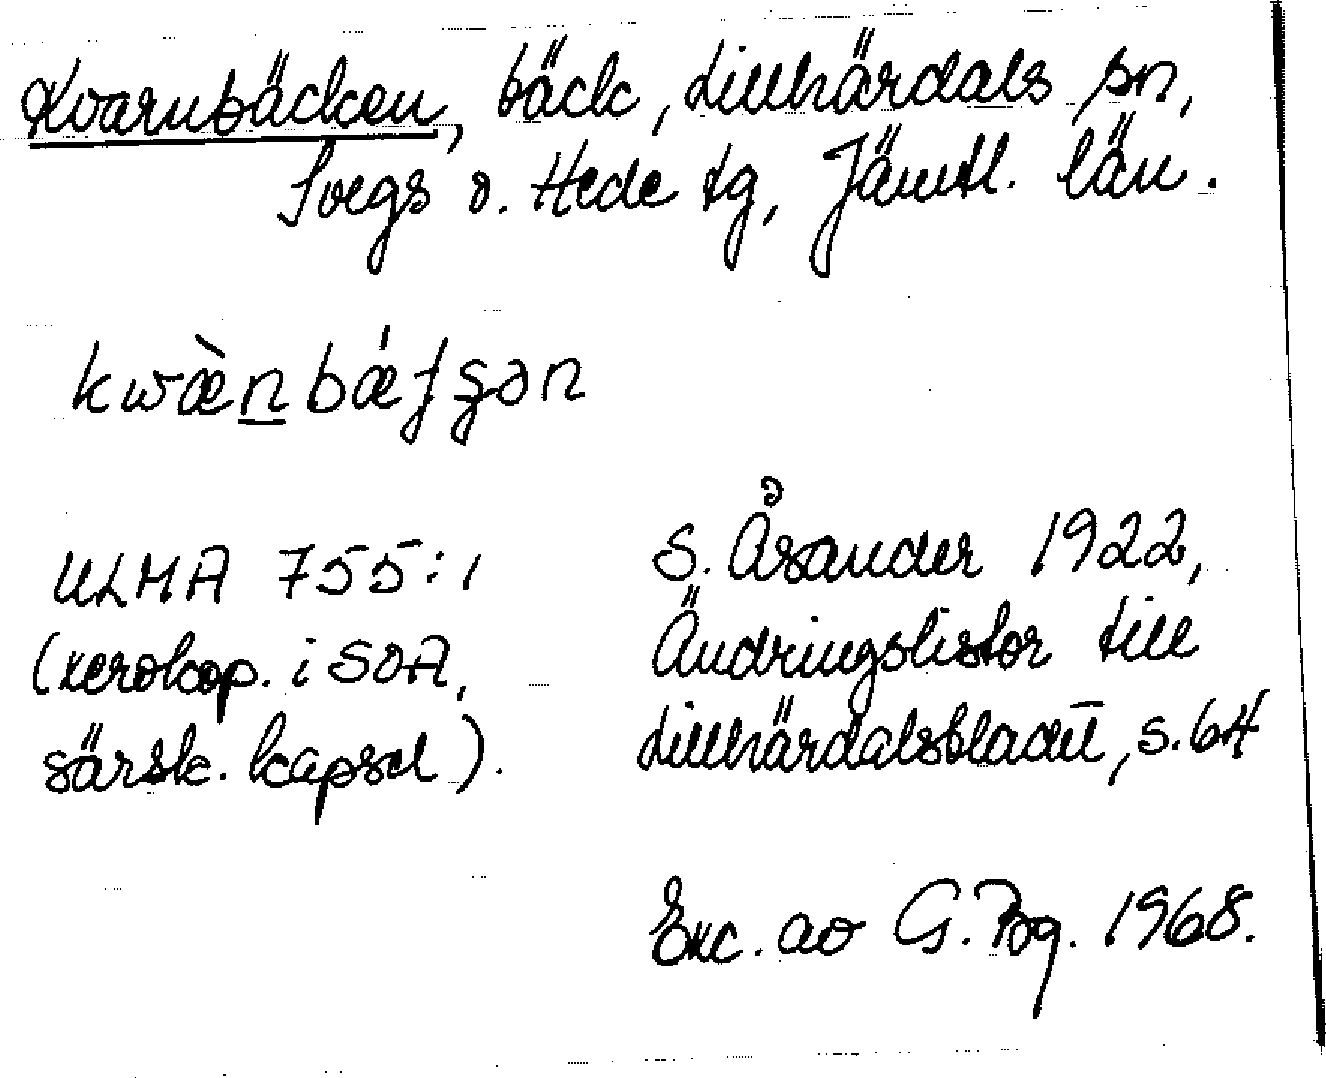 Kvarnbäcken, bäck, Lillhärdals sn,
Svegs o. Hede tg, Jämtl. län.
kwæ̀n̲bǽʄʂən
ULMA 755:1
(xerokop. i SOA,
särsk. kapsel).
S. Åsander 1922,
Ändringslistor till
Lillhärdalsbladet, s. 64
Exc. av G. Bg. 1968.